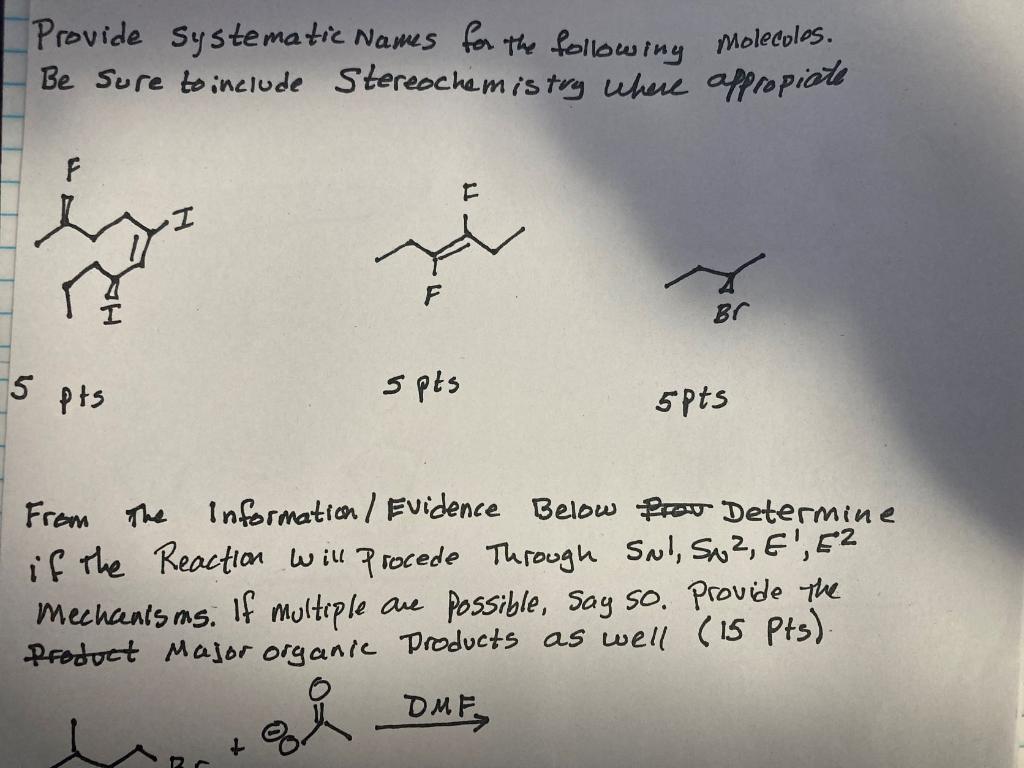 Provide Systematic Names for the following Molecoles.
Be Sure to include Stereochemistry where appropiate
F
I
I
F
F
Br
5 pts
5 pts
5 pts
From The Information/Evidence Below Prov Determine
if the Reaction will Procede Through SN1, SN2, E1, E2
Mechanisms. If multiple are Possible, Say so. Provide the
Product Major organic Products as well (15 Pts).
O
DMF
Br + ⊖O